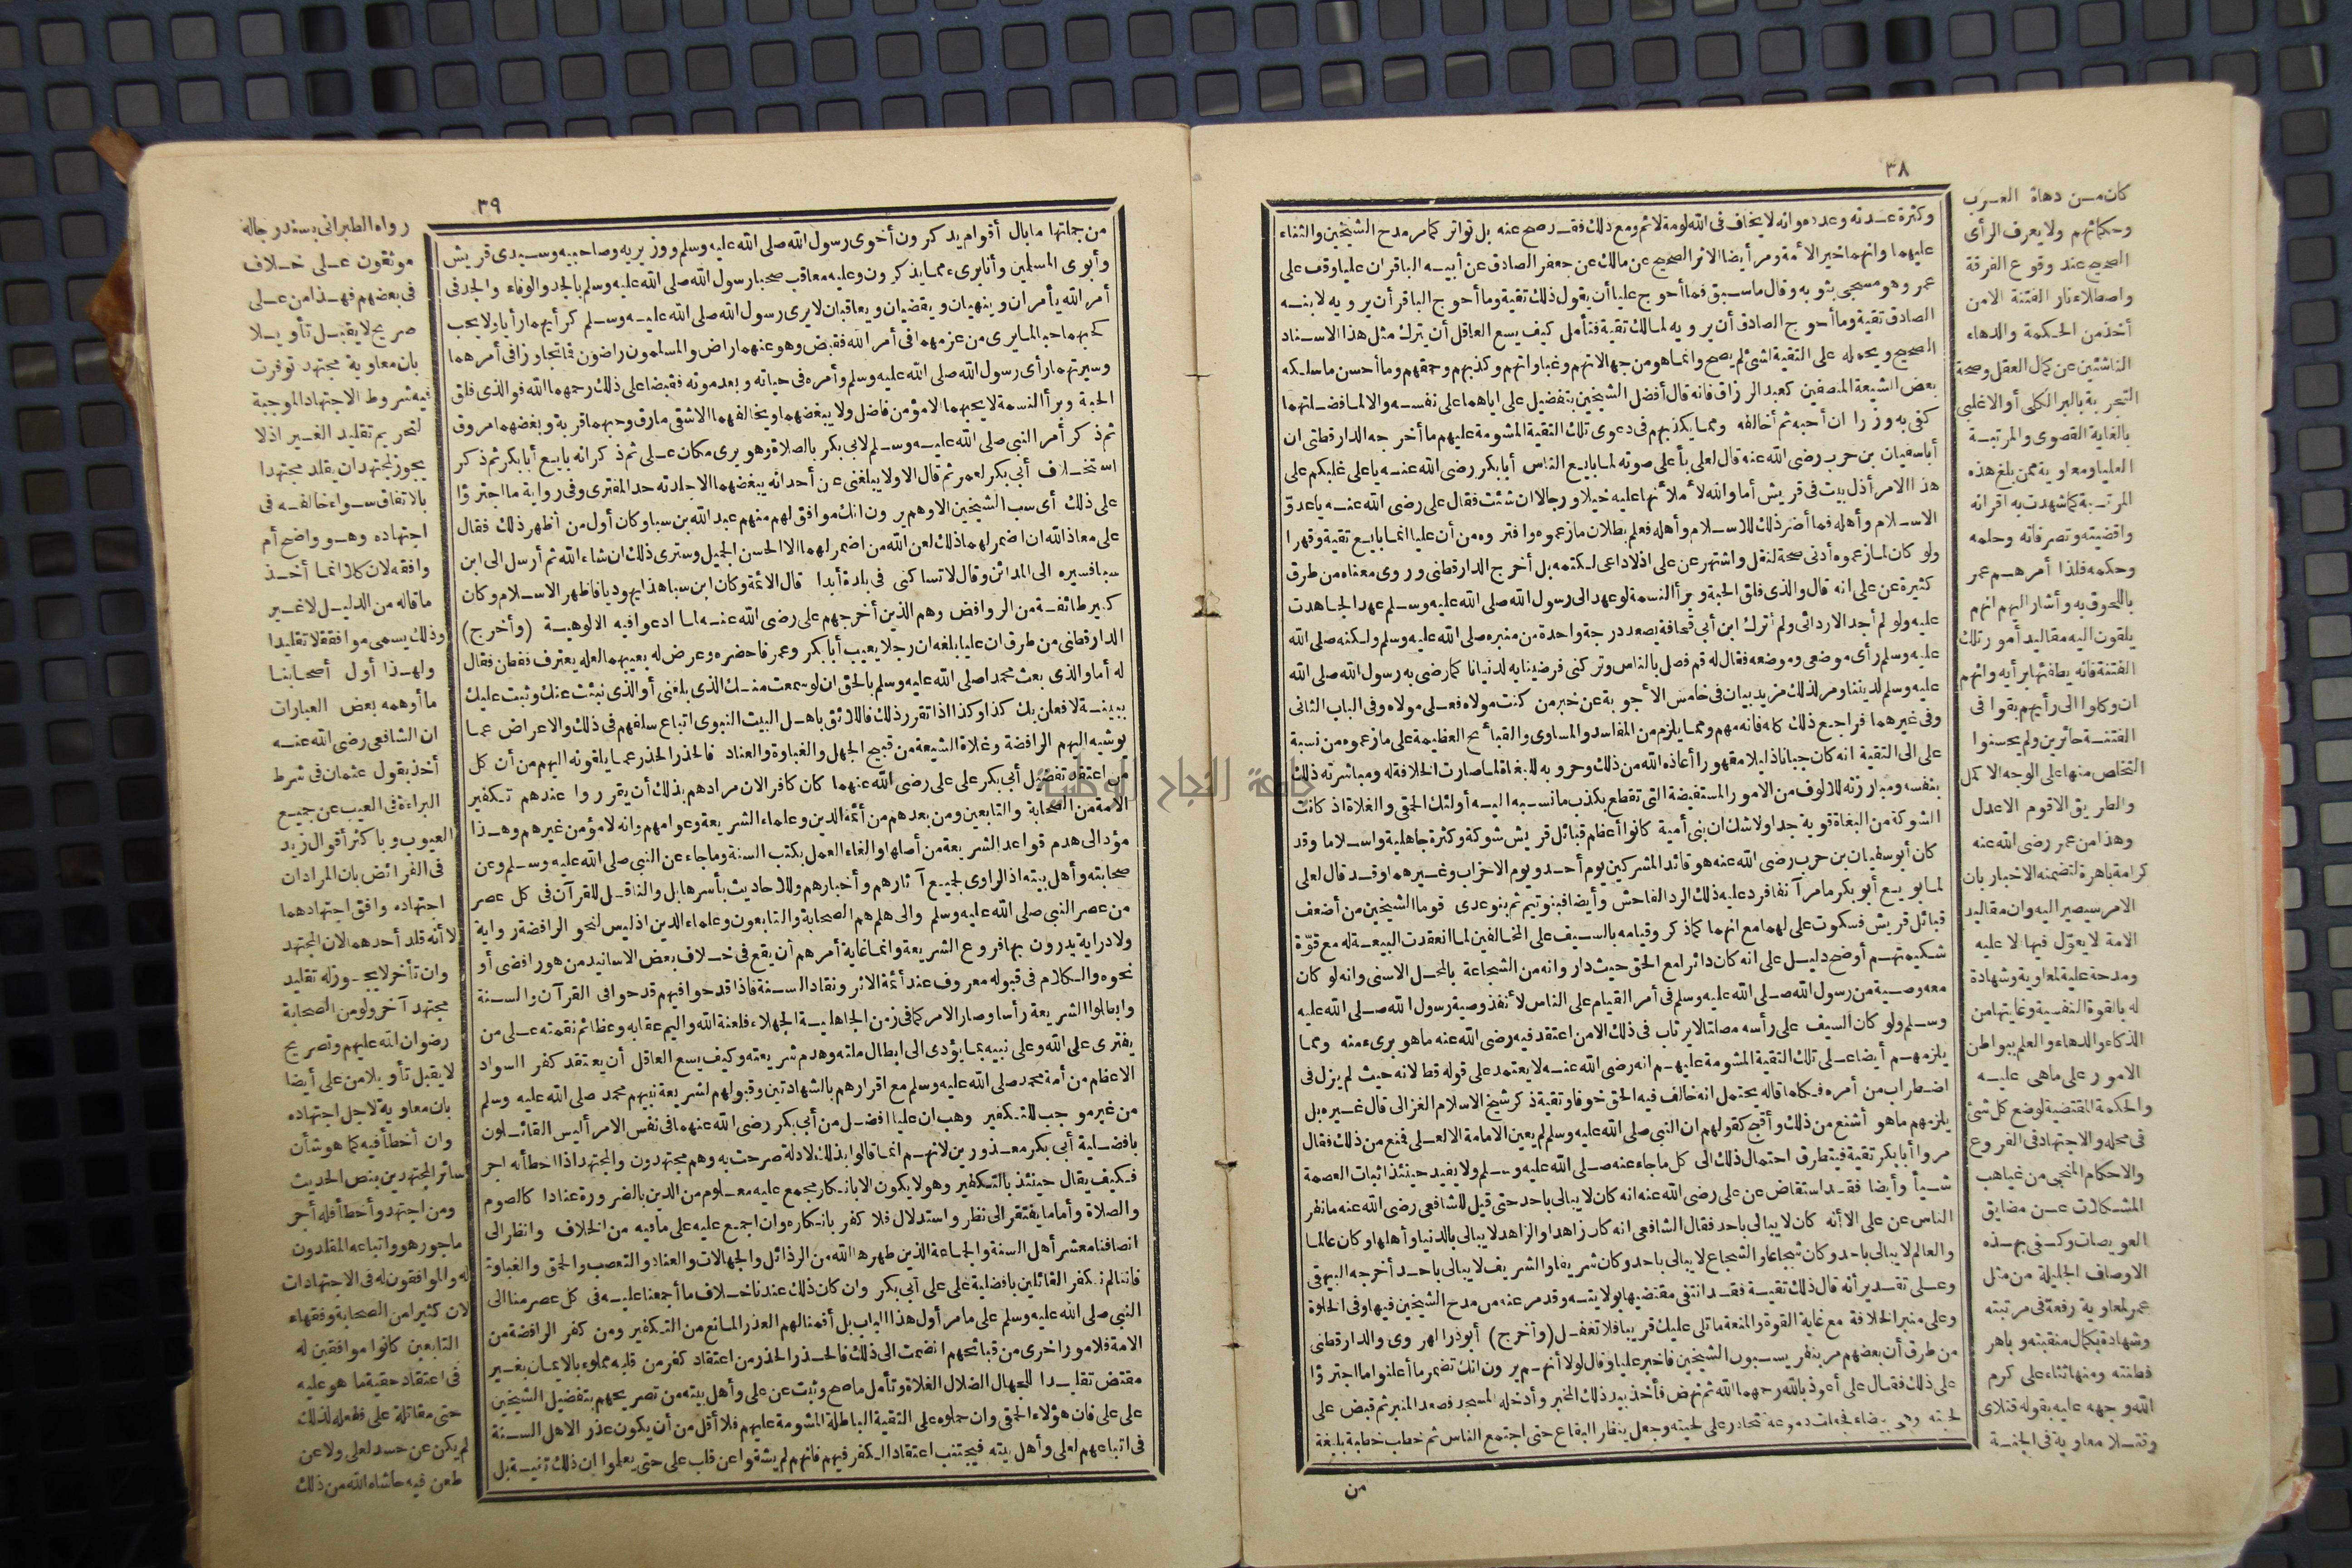 ٣٨
كان من دهاة العرب
وحكمائهم ولا يعرف الرأى
الصحيح عند وقوع الفرقة
واصطلاء نار الفتنة الا من
أخذ من الحكمة والدهاء
الناشئين عن كمال العقل وصحة
التجربة بالبر الكلى أو الاغلبى
بالغاية القصوى والمرتبة
العليا ومعاوية ممن بلغ هذه
المرتبة كما شهدت به اقرانه
واقضيته وتصرفاته وحلمه
وحكمه فلذا أمرهم عمر
باللحوق به وأشار اليهم انهم
يلقون اليه مقاليد أمور تلك
الفتنة فانه يطفئها برأيه وانهم
ان وكلوا الى رأيهم بقوا فى
الفتنة حائرين ولم يحسنوا
التخلص منها على الوجه الاكمل
والطريق الاقوم الاعدل
وهذا من عمر رضى الله عنه
كرامة باهرة لتضمنه الاخبار بان
الامر سيصير اليه وان مقاليد
الامة لا يعوّل فيها الا عليه
ومدحة علية لمعاوية وشهادة
له بالقوة النفسية وغايتها من
الذكاء والدهاء والعلم ببواطن
الامور على ماهى عليه
والحكمة المقتضية لوضع كل شئ
فى محله والاجتهاد فى الفروع
والاحكام المنجى من غياهب
المشكلات عن مضايق
العويصات وكفى بهذه
الاوصاف الجليلة من مثل
عمر لمعاوية رفعة فى مرتبته
وشهادة بكمال منقبته وباهر
فطنته ومنها ثناء على كرم
الله وجهه عليه بقوله قتلاى
وقتلا معاوية فى الجنة
وكثرة عدته وعدده وانه لا يخاف فى الله لومة لائم ومع ذلك فقد صح عنه بل تواتر كما مر مدح الشيخين والثناء
عليهما وانهما خير الأمة ومر أيضا الاثر الصحيح عن مالك عن جعفر الصادق عن أبيه الباقر ان عليا وقف على
عمر وهو مسجى بثوبه وقال ما سبق فما أحوج عليا أن يقول ذلك تقية وما أحوج الباقر أن يرويه لابنه
الصادق تقية وما أحوج الصادق أن يرويه لمالك تقية فتأمل كيف يسع العاقل أن يترك مثل هذا الاسناد
الصحيح ويحمله على التقية لشئ لم يصح وانما هو من جهالاتهم وغباواتهم وكذبهم وحمقهم وما أحسن ما سلكه
بعض الشيعة المنصفين كعبد الرزاق فانه قال أفضل الشيخين بتفضيل على اياهما على نفسه والا لما فضلتهما
كفى به وزرا ان أحبه ثم أخالفه ومما يكذبهم فى دعوى تلك التقية المشومة عليهم ما أخرجه الدارقطنى ان
أبا سفيان بن حرب رضى الله عنه قال لعلى بأعلى صوته لما بايع الناس أبا بكر رضى الله عنه يا على غلبكم على
هذا الامر أذل بيت فى قريش أما والله لأملأنها عليه خيلا ورجالا ان شئت فقال على رضى الله عنه يا عدوّ
الاسلام وأهله فما أضر ذلك للاسلام وأهله فعلم بطلان ما زعموه وافتروه من أن عليا انما بايع تقية وقهرا
ولو كان لما زعموه أدنى صحة لنقل واشتهر عن على اذ لا داعى لكتمه بل أخرج الدارقطنى وروى معناه من طرق
كثيرة عن على انه قال والذى فلق الحبة وبرأ النسمة لو عهد الى رسول الله صلى الله عليه وسلم عهد الجاهدت
عليه ولو لم أجد الا ردائى ولم أترك ابن أبى قحافة يصعد درجة واحدة من منبره صلى الله عليه وسلم ولكنه صلى الله
عليه وسلم رأى موضعى وموضعه فقال له قم فصل بالناس وتركنى فرضينا به لدنيانا كما رضى به رسول الله صلى الله
عليه وسلم لديننا ومر لذلك مزيد بيان فى خامس الأجوبة عن خبر من كنت مولاه فعلى مولاه وفى الباب الثانى
وفى غيرهما فراجع ذلك كله فانه مهم ومما يلزم من المفاسد والمساوى والقبائح العظيمة على ما زعموه من نسبة
على الى التقية انه كان جبانا ذليلا مقهورا أعاذه الله من ذلك وحروبه للبغاة لما صارت الخلافة له ومباشرته ذلك
بنفسه ومبارزته للالوف من الامور المستفيضة التى تقطع بكذب ما نسبه اليه أولئك الحمقى والغلاة اذ كانت
الشوكة من البغاة قوية جدا ولا شك ان بنى أمية كانوا أعظم قبائل قريش شوكة وكثرة جاهلية واسلاما وقد
كان أبو سفيان بن حرب رضى الله عنه هو قائد المشركين يوم أحد ويوم الاحزاب وغيرهما وقد قال لعلى
لما بويع أبو بكر ما مر آنفا فرد عليه ذلك الرد الفاحش وأيضا فبنو تيم ثم بنو عدى قوما الشيخين من أضعف
قبائل قريش فسكوت على لهما مع انهما كما ذكر وقيامه بالسيف على المخالفين لما انعقدت البيعة له مع قوّة
شكيمتهم أوضح دليل على انه كان دائرا مع الحق حيث دار وانه من الشجاعة بالمحل الاسنى وانه لو كان
معه وصية من رسول الله صلى الله عليه وسلم فى أمر القيام على الناس لأنفذ وصية رسول الله صلى الله عليه
وسلم ولو كان السيف على رأسه مصلتا لا يرتاب فى ذلك الا من اعتقد فيه رضى الله عنه ما هو برىء منه ومما
يلزمهم أيضا على تلك التقية المشومة عليهم انه رضى الله عنه لا يعتمد على قوله قط لانه حيث لم يزل فى
اضطراب من أمره فكل ما قاله يحتمل انه خالف فيه الحق خوفا وتقية ذكر شيخ الاسلام الغزالى قال غيره بل
يلزمهم ما هو أشنع من ذلك وأقبح كقولهم ان النبى صلى الله عليه وسلم لم يعين الامامة الا لعلى فمنع من ذلك فقال
مروا أبا بكر تقية فيتطرق احتمال ذلك الى كل ما جاء عنه صلى الله عليه وسلم ولا يفيد حينئذ اثبات العصمة
شيأ وأيضا فقد استفاض عن على رضى الله عنه انه كان لا يبالى باحد حتى قيل للشافعى رضى الله عنه ما نفر
الناس عن على الا أنه كان لا يبالى باحد فقال الشافعى انه كان زاهدا والزاهد لا يبالى بالدنيا وأهلها وكان عالما
والعالم لا يبالى باحد وكان شجاعا والشجاع لا يبالى باحد وكان شريفا والشريف لا يبالى باحد أخرجه البيهقى
وعلى تقدير أنه قال ذلك تقية فقد انتفى مقتضيها بولايته وقد مر عنه من مدح الشيخين فيها وفى الخلوة
وعلى منبر الخلافة مع غاية القوة والمنعة ما تلى عليك قريبا فلا تغفل (وأخرج) أبو ذر الهروى والدارقطنى
من طرق أن بعضهم مر بنفر يسبون الشيخين فاخبر عليا وقال لولا أنهم يرون انك تضمر ما أعلنوا ما اجترؤا
على ذلك فقال على أعوذ بالله رحمهما الله ثم نهض فأخذ بيد ذلك المخبر وأدخله المسجد فصعد المنبر ثم قبض على
لحيته وهى بيضاء فجعلت دموعه تتحادر على لحيته وجعل ينظر البقاع حتى اجتمع الناس ثم خطب خطبة بليغة
من
٣٩
من جملتها ما بال أقوام يذكرون أخوى رسول الله صلى الله عليه وسلم ووزيريه وصاحبيه وسيدى قريش
وأبوى المسلمين وأنا برىء مما يذكرون وعليه معاقب صحبا رسول الله صلى الله عليه وسلم بالجد والوفاء والجد فى
أمر الله يأمران وينهيان ويقضيان ويعاقبان لا يرى رسول الله صلى الله عليه وسلم كرأيهما رأيا ولا يحب
كحبهما حبا لما يرى من عزمهما فى أمر الله فقبض وهو عنهما راض والمسلمون راضون فما تجاوزا فى أمرهما
وسيرتهما رأى رسول الله صلى الله عليه وسلم وأمره فى حياته وبعد موته فقبضا على ذلك رحمهما الله فوالذى فلق
الحبة وبرأ النسمة لا يحبهما الا مؤمن فاضل ولا يبغضهما ويخالفهما الا شقى مارق وحبهما قربة وبغضهما مروق
ثم ذكر أمر النبى صلى الله عليه وسلم لابى بكر بالصلاة وهو يرى مكان على ثم ذكر انه بايع أبا بكر ثم ذكر
استخلاف أبى بكر لعمر ثم قال الا ولا يبلغنى عن أحد انه يبغضهما الا جلدته حد المفترى وفى رواية ما اجترؤا
على ذلك أى سب الشيخين الا وهم يرون انك موافق لهم منهم عبد الله بن سبا وكان أول من أظهر ذلك فقال
على معاذ الله ان اضمر لهما ذلك لعن الله من اضمر لهما الا الحسن الجميل وسترى ذلك ان شاء الله ثم أرسل الى ابن
سبا فسيره الى المدائن وقال لا تساكنى فى بلدة أبدا قال الائمة وكان ابن سبا هذا يهوديا فاظهر الاسلام وكان
كبير طائفة من الروافض وهم الذين أخرجهم على رضى الله عنه لما ادعوا فيه الالوهية (وأخرج)
الدارقطنى من طرق ان عليا بلغه ان رجلا يعيب أبا بكر وعمر فاحضره وعرض له بعيبهما لعله يعترف ففطن فقال
له أما والذى بعث محمدا صلى الله عليه وسلم بالحق ان لو سمعت منك الذى بلغنى أو الذى نبئت عنك وثبت عليك
ببينة لافعلن بك كذا وكذا اذا تقرر ذلك فاللائق باهل البيت النبوى اتباع سلفهم فى ذلك والاعراض عما
يوشيه اليهم الرافضة وغلاة الشيعة من قبيح الجهل والغباوة والعناد فالحذر الحذر عما يلقونه اليهم من أن كل
من اعتقد تفضيل أبى بكر على على رضى الله عنهما كان كافرا لان مرادهم بذلك أن يقرروا عندهم تكفير
الامة من الصحابة والتابعين ومن بعدهم من أئمة الدين وعلماء الشريعة وعوامهم وانه لا مؤمن غيرهم وهذا
مؤد الى هدم قواعد الشريعة من أصلها والغاء العمل بكتب السنة وما جاء عن النبى صلى الله عليه وسلم وعن
صحابته وأهل بيته اذ الراوى لجميع آثارهم وأخبارهم وللاحاديث بأسرها بل والناقل للقرآن فى كل عصر
من عصر النبى صلى الله عليه وسلم والى هلم هم الصحابة والتابعون وعلماء الدين اذ ليس لنحو الرافضة رواية
ولا دراية يدرون بها فروع الشريعة وانما غاية أمرهم أن يقع فى خلاف بعض الاسانيد من هو رافضى أو
نحوه والكلام فى قبوله معروف عند أئمة الاثر ونقاد السنة فاذا قدحوا فيهم قدحوا فى القرآن والسنة
وابطلوا الشريعة رأسا وصار الامر كما فى زمن الجاهلية الجهلاء فلعنة الله وأليم عقابه وعظائم نقمته على من
يفترى على الله وعلى نبيه بما يؤدى الى ابطال ملته وهدم شريعته وكيف يسع العاقل أن يعتقد كفر السواد
الاعظم من أمة محمد صلى الله عليه وسلم مع اقرارهم بالشهادتين وقبولهم لشريعة نبيهم محمد صلى الله عليه وسلم
من غير موجب للتكفير وهب ان عليا افضل من أبى بكر رضى الله عنهما فى نفس الامر أليس القائلون
بافضلية أبى بكر معذورين لانهم انما قالوا بذلك لادلة صرحت به وهم مجتهدون والمجتهد اذا اخطأ له اجر
فكيف يقال حينئذ بالتكفير وهو لا يكون الا بانكار مجمع عليه معلوم من الدين بالضرورة عنادا كالصوم
والصلاة وأما ما يفتقر الى نظر واستدلال فلا كفر بانكاره وان اجمع عليه على ما فيه من الخلاف وانظر الى
انصافنا معشر أهل السنة والجماعة الذين طهرهم الله من الرذائل والجهالات والعناد والتعصب والحمق والغباوة
فاننا لم نكفر القائلين بافضلية على على أبى بكر وان كان ذلك عندنا خلاف ما أجمعنا عليه فى كل عصر منا الى
النبى صلى الله عليه وسلم على ما مر أول هذا الباب بل أقمنا لهم العذر المانع من التكفير ومن كفر الرافضة من
الامة فلامور اخرى من قبائحهم انضمت الى ذلك فالحذر الحذر من اعتقاد كفر من قلبه مملوء بالايمان بغير
مقتض تقليدا للجهال الضلال الغلاة وتأمل ما صح وثبت عن على وأهل بيته من تصريحهم بتفضيل الشيخين
على على فان هؤلاء الحمقى وان حملوه على التقية الباطلة المشومة عليهم فلا أقل من أن يكون عذرا لاهل السنة
فى اتباعهم لعلى وأهل بيته فيجتنب اعتقاد الكفر فيهم فانهم لم يشقوا عن قلب على حتى يعلموا ان ذلك تقية بل
رواه الطبرانى بسند رجاله
موثقون على خلاف
فى بعضهم فهذا من على
صريح لا يقبل تأويلا
بان معاوية مجتهد توفرت
فيه شروط الاجتهاد الموجبة
لتحريم تقليد الغير اذ لا
يجوز لمجتهد ان يقلد مجتهدا
بالاتفاق سواء خالفه فى
اجتهاده وهو واضح أم
وافقه لان كلا انما أخذ
ما قاله من الدليل لا غير
وذلك يسمى موافقة لا تقليدا
ولهذا أول أصحابنا
ما أوهمه بعض العبارات
ان الشافعى رضى الله عنه
أخذ بقول عثمان فى شرط
البراءة فى العيب عن جميع
العيوب وباكثر أقوال زيد
فى الفرائض بان المراد ان
اجتهاده وافق اجتهادهما
لا أنه قلد أحدهما لان المجتهد
وان تأخر لا يجوز له تقليد
مجتهد آخر ولو من الصحابة
رضوان الله عليهم وتصريح
لا يقبل تأويلا من على أيضا
بان معاوية لاجل اجتهاده
وان أخطأ فيه كما هو شأن
سائر المجتهدين بنص الحديث
ومن اجتهد وأخطأ فله أجر
ماجور هو واتباعه المقلدون
له والموافقون له فى الاجتهادات
لان كثيرا من الصحابة وفقهاء
التابعين كانوا موافقين له
فى اعتقاد حقية ما هو عليه
حتى مقاتلة على ففعله لذلك
لم يكن عن حسد لعلى ولا عن
طعن فيه حاشاه الله من ذلك
جامعة النجاح الوطنية